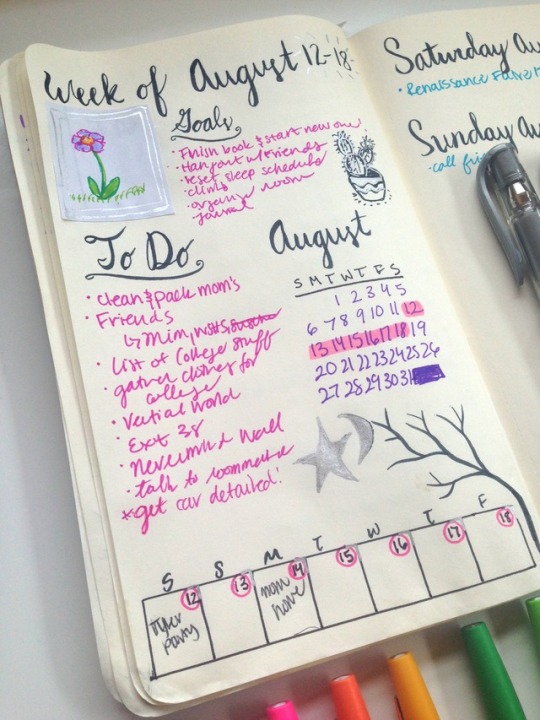 Week of August 12-18
Goals
· Finish book & start new one!
· Hang out w/ friends
· reset sleep schedule
· climb
· organize room
· journal
To Do
· clean & pack mom's
· Friends
↳ Mim,
· List of College stuff
· gather clothes for
college
· Vertical World
· Exit 38
· Nevermind Wall
· talk to roommate
* get car detailed!
August
S M T W T F S
1 2 3 4 5
6 7 8 9 10 11 12
13 14 15 16 17 18 19
20 21 22 23 24 25 26
27 28 29 30 31
S S M T W T F
12 13 14 15 16 17 18
party
mom
home
Saturday Au
· Renaissance
Sunday Au
· call